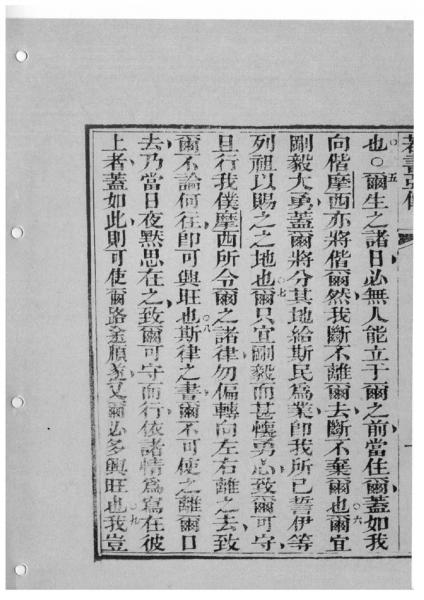 也〇五爾生之諸日必無人能立于爾之前當住爾蓋如我
向偕摩西亦將偕爾然我斷不離爾去斷不棄爾也六爾宜
剛毅大勇蓋爾將分其地給斯民爲業即我所已誓伊等
列祖以賜之之地也七爾只宜剛毅而甚懷勇志致爾可守
且行我僕摩西所令爾之諸律勿偏轉向左右離之去致
爾不論何往即可興旺也八斯律之書爾不可使之離爾口
去乃當日夜默思在之致爾可守而行依諸情爲寫在彼
上者蓋如此則可使爾路全順遂又爾必多興旺也九我豈